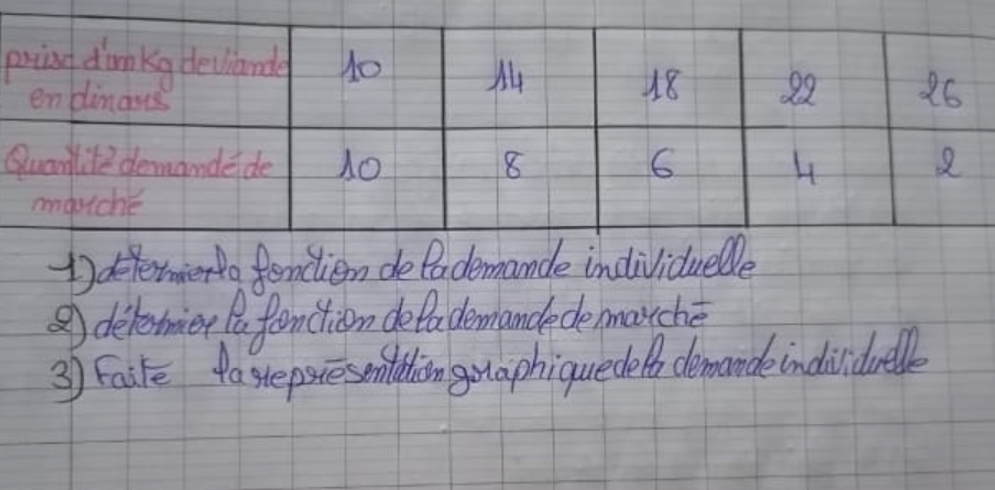 prix d'un Kg de viande 10 14 18 22 26
en dinars
Quantité demandé de 10 8 6 4 2
marché
1) détermier la fonction de la demande individuelle
2) détermier la fonction de la demande de marché
3) Faite la représentation graphique de la demande individuelle